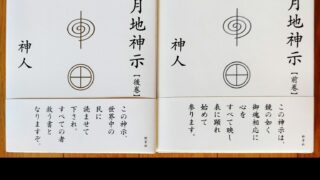 月地神示【前巻】
神人
この神示は、
鏡の如く
御魂相応に
心を
すべて映し
表に顕れ
始めて
参ります。
月地神示【後巻】
神人
この神示、
世界中の
民に
読ませて
下され、
すべての者
救う書と
なりますぞ。